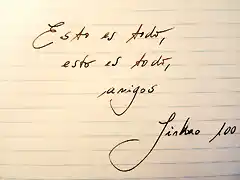 Esto es todo,
esto es todo,
amigos
100